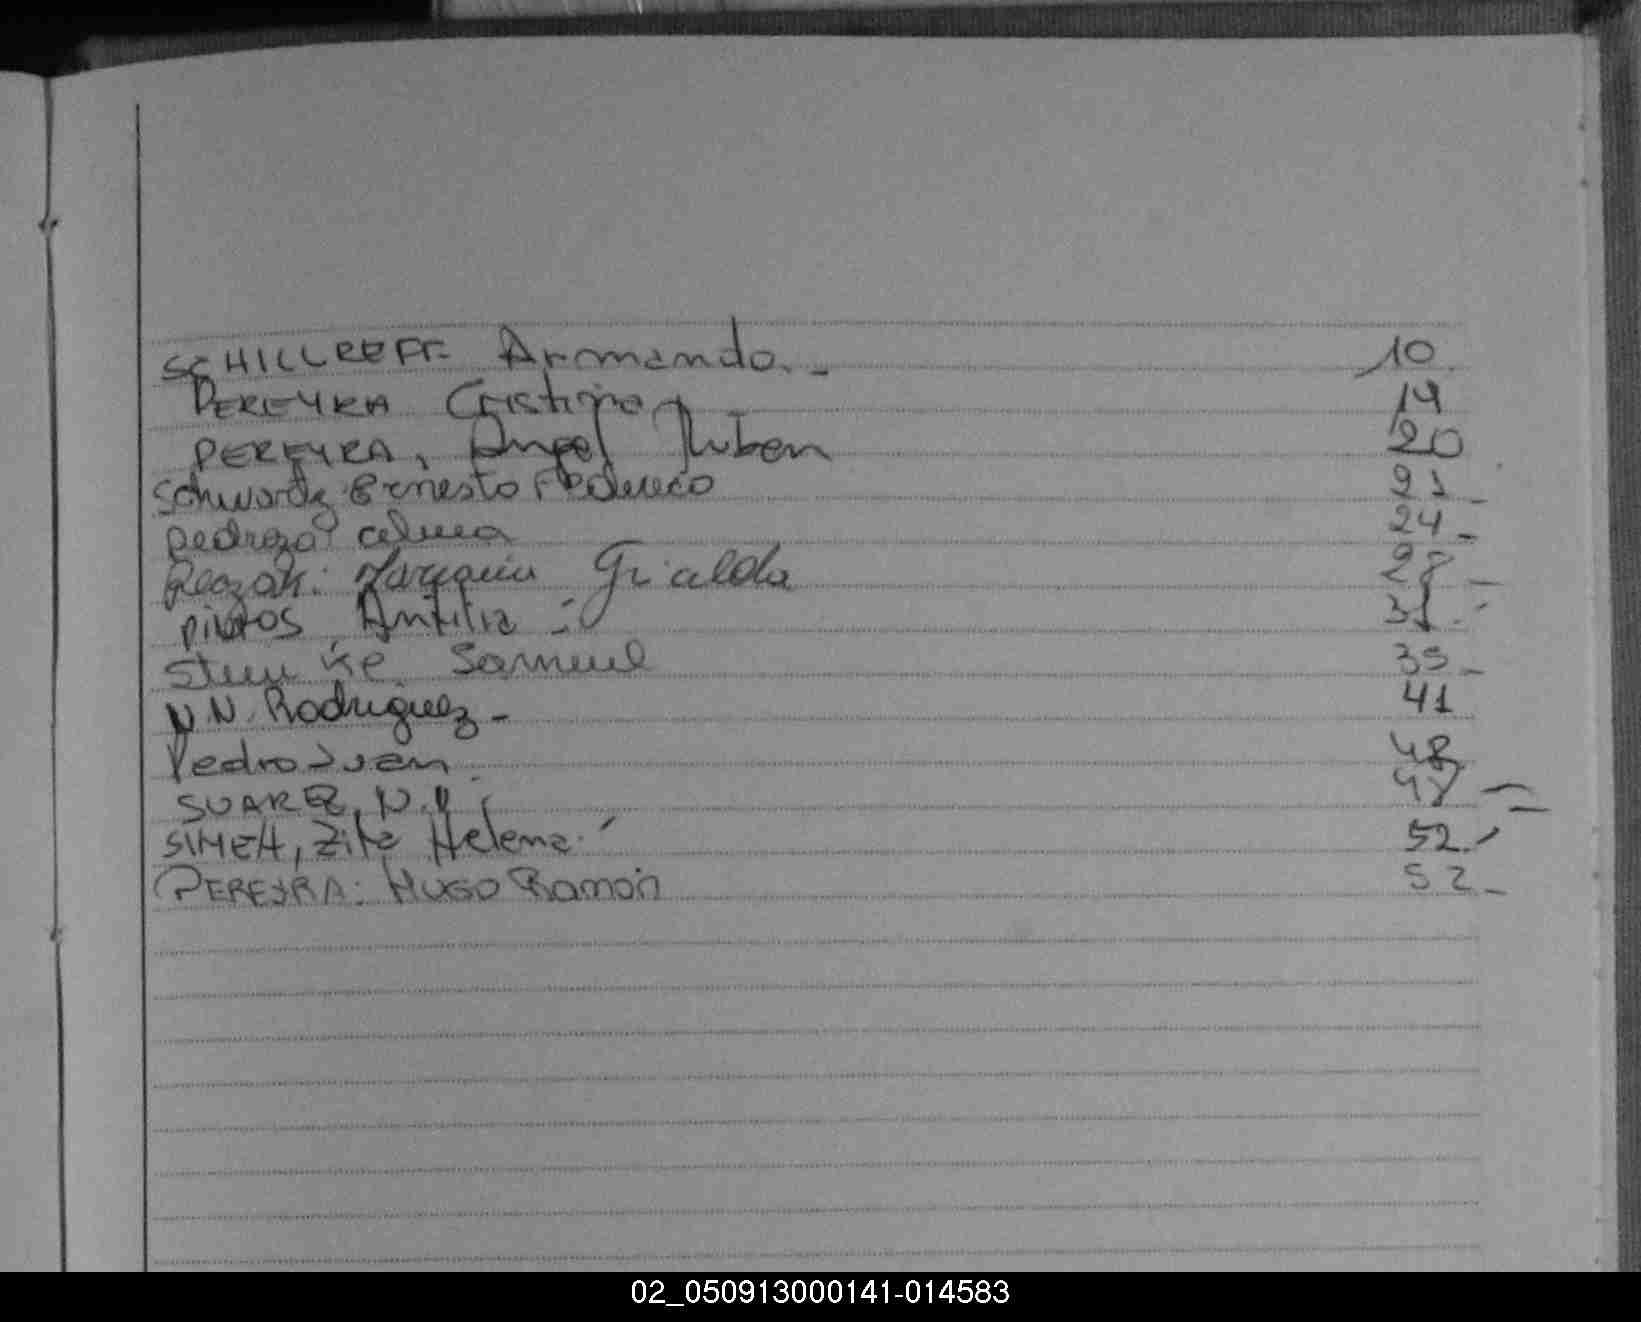 SCHILLREFF Armando. - 10
PEREYRA Cristina 19
PEREYRA, Angel Ruben 20
Schwartz Ernesto Federico 21 -
Pedroza 24 -
Grialda
Antilia - 31 -
Samuel 35 -
N.N. Rodriguez - 41
Pedro Juan. 48
SUAREZ, N.N 48
SIMEH, Zita Helena. 52.
PEREYRA: HUGO Ramón 52 -
02_050913000141-014583